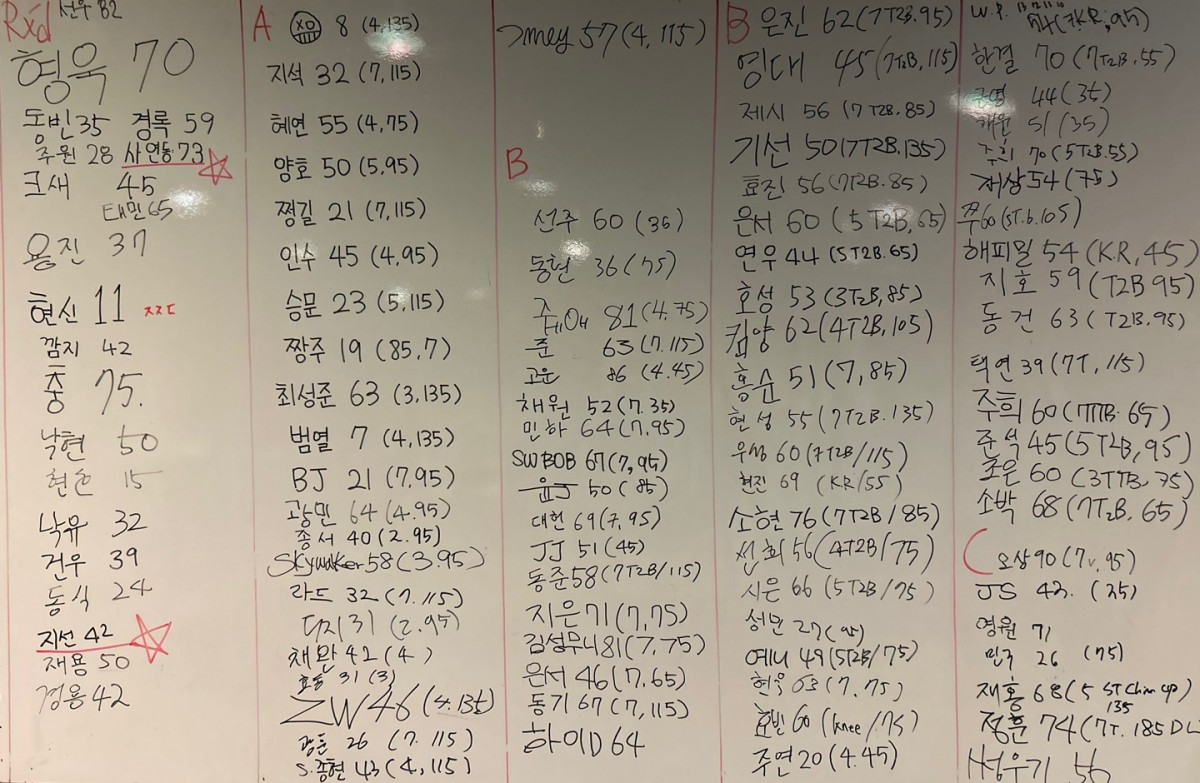 Rx'd 선우 82
형욱 70
동빈 35 경록 59
주원 28 사연동 73
크새 45
태민 65
용진 37
현신 11 ㅈㅈㄷ
깜지 42
충 75.
낙현 50
현준 15
낙유 32
건우 39
동식 24
지선 42
재용 50
경용 42
A 8 (4,135)
지석 32 (7,115)
혜연 55 (4,75)
양호 50 (5,95)
쩡길 21 (7,115)
인수 45 (4,95)
승문 23 (5,115)
짱주 19 (85,7)
최성준 63 (3,135)
범열 7 (4,135)
BJ 21 (7.95)
광민 64 (4.95)
종서 40 (2.95)
Skywalker 58 (3.95)
라드 32 (7.115)
디지 31 (2.95)
채완 42 (4)
31 (3)
ZW 46 (4.135)
광돈 26 (7.115)
S.종현 43 (4,115)
57 (4,115)
B
선주 60 (36)
동현 36 (75)
81 (4.75)
준 63 (7.115)
고운 86 (4.45)
채원 52 (7.35)
민하 64 (7,95)
SWBOB 67 (7,95)
윤J 50 (85)
대헌 69 (7,95)
JJ 51 (45)
동준 58 (7T2B/115)
지은 71 (7,75)
김성무니 81 (7,75)
은서 46 (7.65)
동기 67 (7,115)
하이D 64
B 은진 62 (7T2B.95)
영대 45 (7T2B,115)
제시 56 (7T2B.85)
기선 50 (7T2B.135)
효진 56 (7T2B.85)
은서 60 (5T2B,65)
연우 44 (5T2B.65)
호성 53 (3T2B,85)
킴양 62 (4T2B,105)
홍순 51 (7,85)
현성 55 (7T2B.135)
우성 60 (7T2B/115)
현진 69 (KR/55)
소현 76 (7T2B/85)
선희 56 (4T2B/75)
시은 66 (5T2B/75)
성민 27
예니 49 (5T2B/75)
혀욱 63 (7.75)
효빈 60 (knee/75)
주연 20 (4.45)
W.P. (7KR,95)
한결 70 (7T2B,55)
44 (35)
51 (35)
주희 70 (5T2B.55)
재상 54 (75)
쭈 60 (5T.b.105)
해피밀 54 (K.R,45)
지호 59 (T2B 95)
동건 63 (T2B.95)
택연 39 (7T,115)
주희 60 (7TTB.65)
준석 45 (5T2B,95)
조은 60 (3TTB,75)
소박 68 (7T2B,65)
C 오상 90 (7v,95)
JS 43. (35)
영원 71
민구 26 (75)
재홍 68 (5 ST Chin up)
135
정훈 74 (7T.185DL
성우기 56